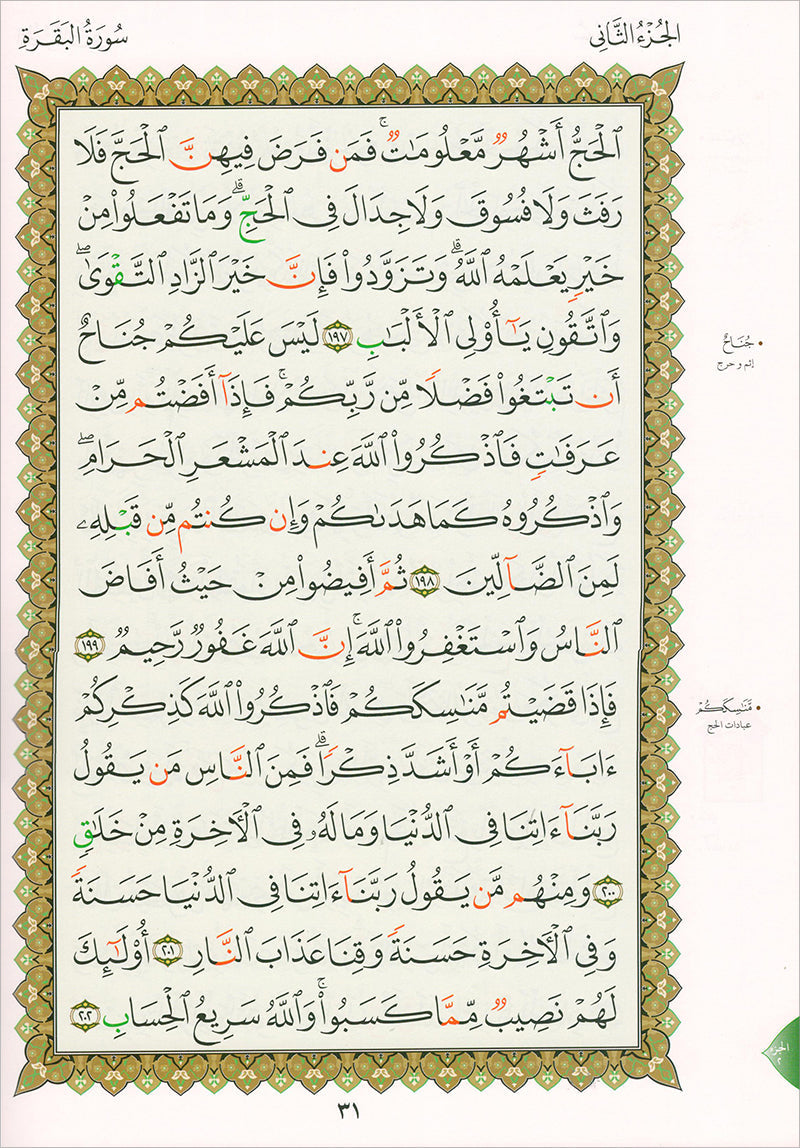 الجُزْءُ الثَّانِي
سُورَةُ البَقَرَةِ
ٱلْحَجُّ أَشْهُرٌ مَّعْلُومَـٰتٌ ۚ فَمَن فَرَضَ فِيهِنَّ ٱلْحَجَّ فَلَا
رَفَثَ وَلَا فُسُوقَ وَلَا جِدَالَ فِى ٱلْحَجِّ ۗ وَمَا تَفْعَلُوا۟ مِنْ
خَيْرٍ يَعْلَمْهُ ٱللَّهُ ۗ وَتَزَوَّدُوا۟ فَإِنَّ خَيْرَ ٱلزَّادِ ٱلتَّقْوَىٰ ۖ
وَٱتَّقُونِ يَـٰٓأُو۟لِى ٱلْأَلْبَـٰبِ ١٩٧ لَيْسَ عَلَيْكُمْ جُنَاحٌ
أَن تَبْتَغُوا۟ فَضْلًا مِّن رَّبِّكُمْ ۚ فَإِذَآ أَفَضْتُم مِّنْ
عَرَفَـٰتٍ فَٱذْكُرُوا۟ ٱللَّهَ عِندَ ٱلْمَشْعَرِ ٱلْحَرَامِ ۖ
وَٱذْكُرُوهُ كَمَا هَدَىٰكُمْ وَإِن كُنتُم مِّن قَبْلِهِۦ
لَمِنَ ٱلضَّآلِّينَ ١٩٨ ثُمَّ أَفِيضُوا۟ مِنْ حَيْثُ أَفَاضَ
ٱلنَّاسُ وَٱسْتَغْفِرُوا۟ ٱللَّهَ ۚ إِنَّ ٱللَّهَ غَفُورٌ رَّحِيمٌ ١٩٩
فَإِذَا قَضَيْتُم مَّنَـٰسِكَكُمْ فَٱذْكُرُوا۟ ٱللَّهَ كَذِكْرِكُمْ
ءَابَآءَكُمْ أَوْ أَشَدَّ ذِكْرًا ۗ فَمِنَ ٱلنَّاسِ مَن يَقُولُ
رَبَّنَآ ءَاتِنَا فِى ٱلدُّنْيَا وَمَا لَهُۥ فِى ٱلْـَٔاخِرَةِ مِنْ خَلَـٰقٍ
٢٠٠ وَمِنْهُم مَّن يَقُولُ رَبَّنَآ ءَاتِنَا فِى ٱلدُّنْيَا حَسَنَةً
وَفِى ٱلْـَٔاخِرَةِ حَسَنَةً وَقِنَا عَذَابَ ٱلنَّارِ ٢٠١ أُو۟لَـٰٓئِكَ
لَهُمْ نَصِيبٌ مِّمَّا كَسَبُوا۟ ۚ وَٱللَّهُ سَرِيعُ ٱلْحِسَابِ ٢٠٢
• جُنَاحٌ
إثم و حرج
• مَّنَـٰسِكَكُمْ
عبادات الحج
الجزء
٢
٣١